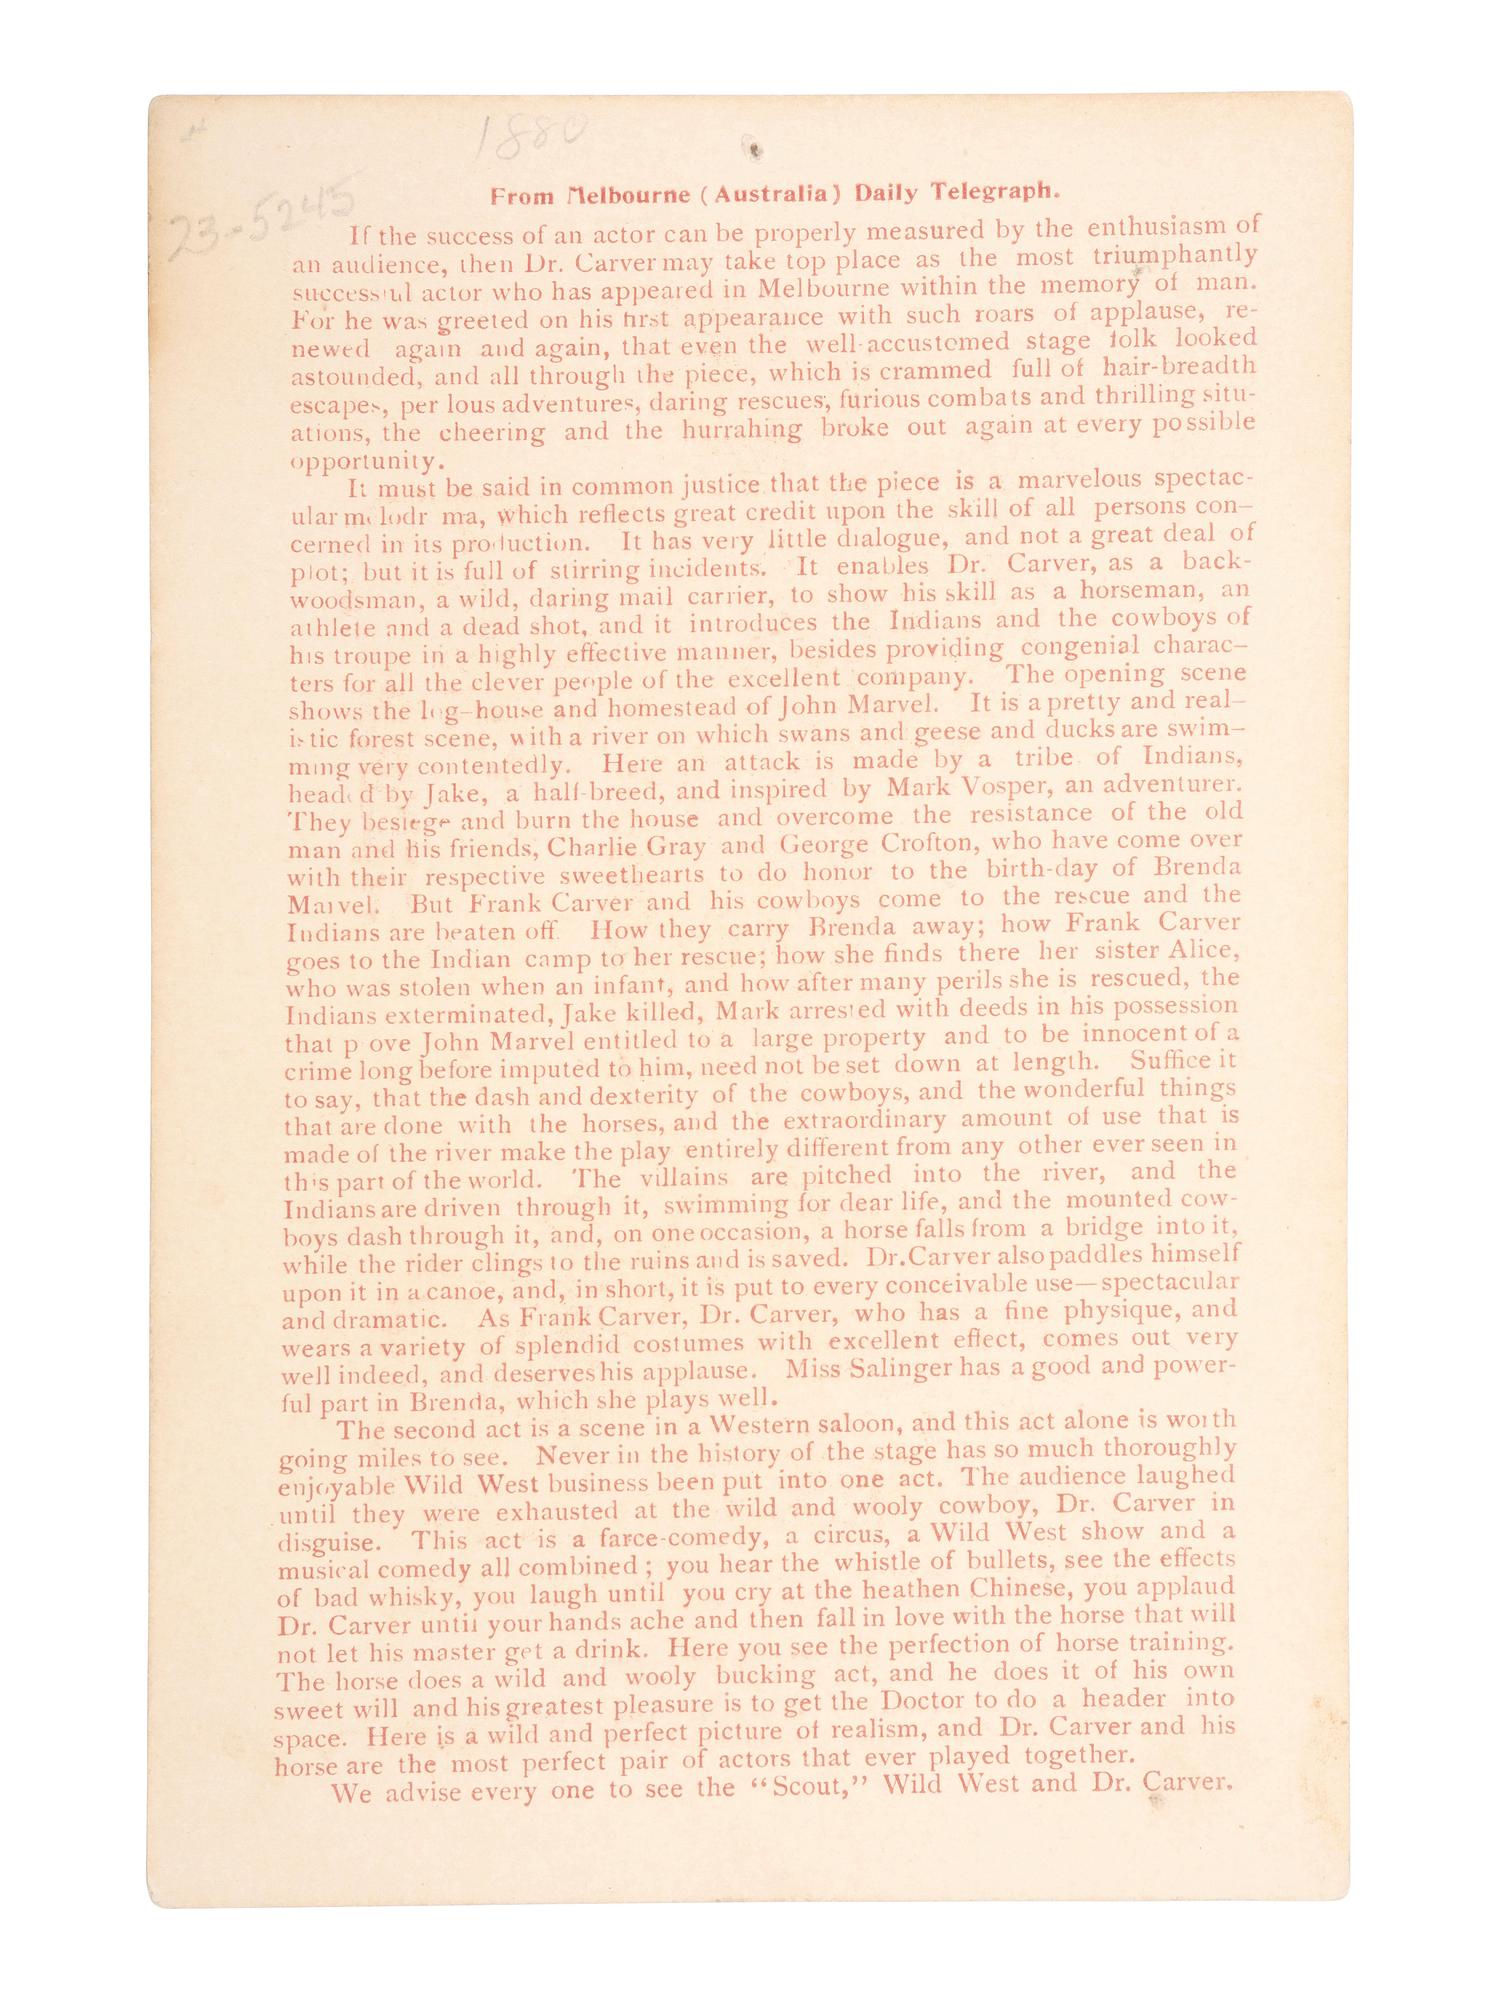 1880
23-5245
From Melbourne (Australia) Daily Telegraph.
If the success of an actor can be properly measured by the enthusiasm of
an audience, then Dr. Carver may take top place as the most triumphantly
successful actor who has appeared in Melbourne within the memory of man.
For he was greeted on his first appearance with such roars of applause, re-
newed again and again, that even the well-accustomed stage folk looked
astounded, and all through the piece, which is crammed full of hair-breadth
escapes, per lous adventures, daring rescues, furious combats and thrilling situ-
ations, the cheering and the hurrahing broke out again at every possible
opportunity.
It must be said in common justice that the piece is a marvelous spectac-
ular melodr ma, which reflects great credit upon the skill of all persons con-
cerned in its production. It has very little dialogue, and not a great deal of
plot; but it is full of stirring incidents. It enables Dr. Carver, as a back-
woodsman, a wild, daring mail carrier, to show his skill as a horseman, an
athlete and a dead shot, and it introduces the Indians and the cowboys of
his troupe in a highly effective manner, besides providing congenial charac-
ters for all the clever people of the excellent company. The opening scene
shows the log-house and homestead of John Marvel. It is a pretty and real-
istic forest scene, with a river on which swans and geese and ducks are swim-
ming very contentedly. Here an attack is made by a tribe of Indians,
headed by Jake, a half-breed, and inspired by Mark Vosper, an adventurer.
They besiege and burn the house and overcome the resistance of the old
man and his friends, Charlie Gray and George Crofton, who have come over
with their respective sweethearts to do honor to the birth-day of Brenda
Marvel. But Frank Carver and his cowboys come to the rescue and the
Indians are beaten off. How they carry Brenda away; how Frank Carver
goes to the Indian camp to her rescue; how she finds there her sister Alice,
who was stolen when an infant, and how after many perils she is rescued, the
Indians exterminated, Jake killed, Mark arrested with deeds in his possession
that p ove John Marvel entitled to a large property and to be innocent of a
crime long before imputed to him, need not be set down at length. Suffice it
to say, that the dash and dexterity of the cowboys, and the wonderful things
that are done with the horses, and the extraordinary amount of use that is
made of the river make the play entirely different from any other ever seen in
this part of the world. The villains are pitched into the river, and the
Indians are driven through it, swimming for dear life, and the mounted cow-
boys dash through it, and, on one occasion, a horse falls from a bridge into it,
while the rider clings to the ruins and is saved. Dr. Carver also paddles himself
upon it in a canoe, and, in short, it is put to every conceivable use—spectacular
and dramatic. As Frank Carver, Dr. Carver, who has a fine physique, and
wears a variety of splendid costumes with excellent effect, comes out very
well indeed, and deserves his applause. Miss Salinger has a good and power-
ful part in Brenda, which she plays well.
The second act is a scene in a Western saloon, and this act alone is worth
going miles to see. Never in the history of the stage has so much thoroughly
enjoyable Wild West business been put into one act. The audience laughed
until they were exhausted at the wild and wooly cowboy, Dr. Carver in
disguise. This act is a farce-comedy, a circus, a Wild West show and a
musical comedy all combined; you hear the whistle of bullets, see the effects
of bad whisky, you laugh until you cry at the heathen Chinese, you applaud
Dr. Carver until your hands ache and then fall in love with the horse that will
not let his master get a drink. Here you see the perfection of horse training.
The horse does a wild and wooly bucking act, and he does it of his own
sweet will and his greatest pleasure is to get the Doctor to do a header into
space. Here is a wild and perfect picture of realism, and Dr. Carver and his
horse are the most perfect pair of actors that ever played together.
We advise every one to see the "Scout," Wild West and Dr. Carver.